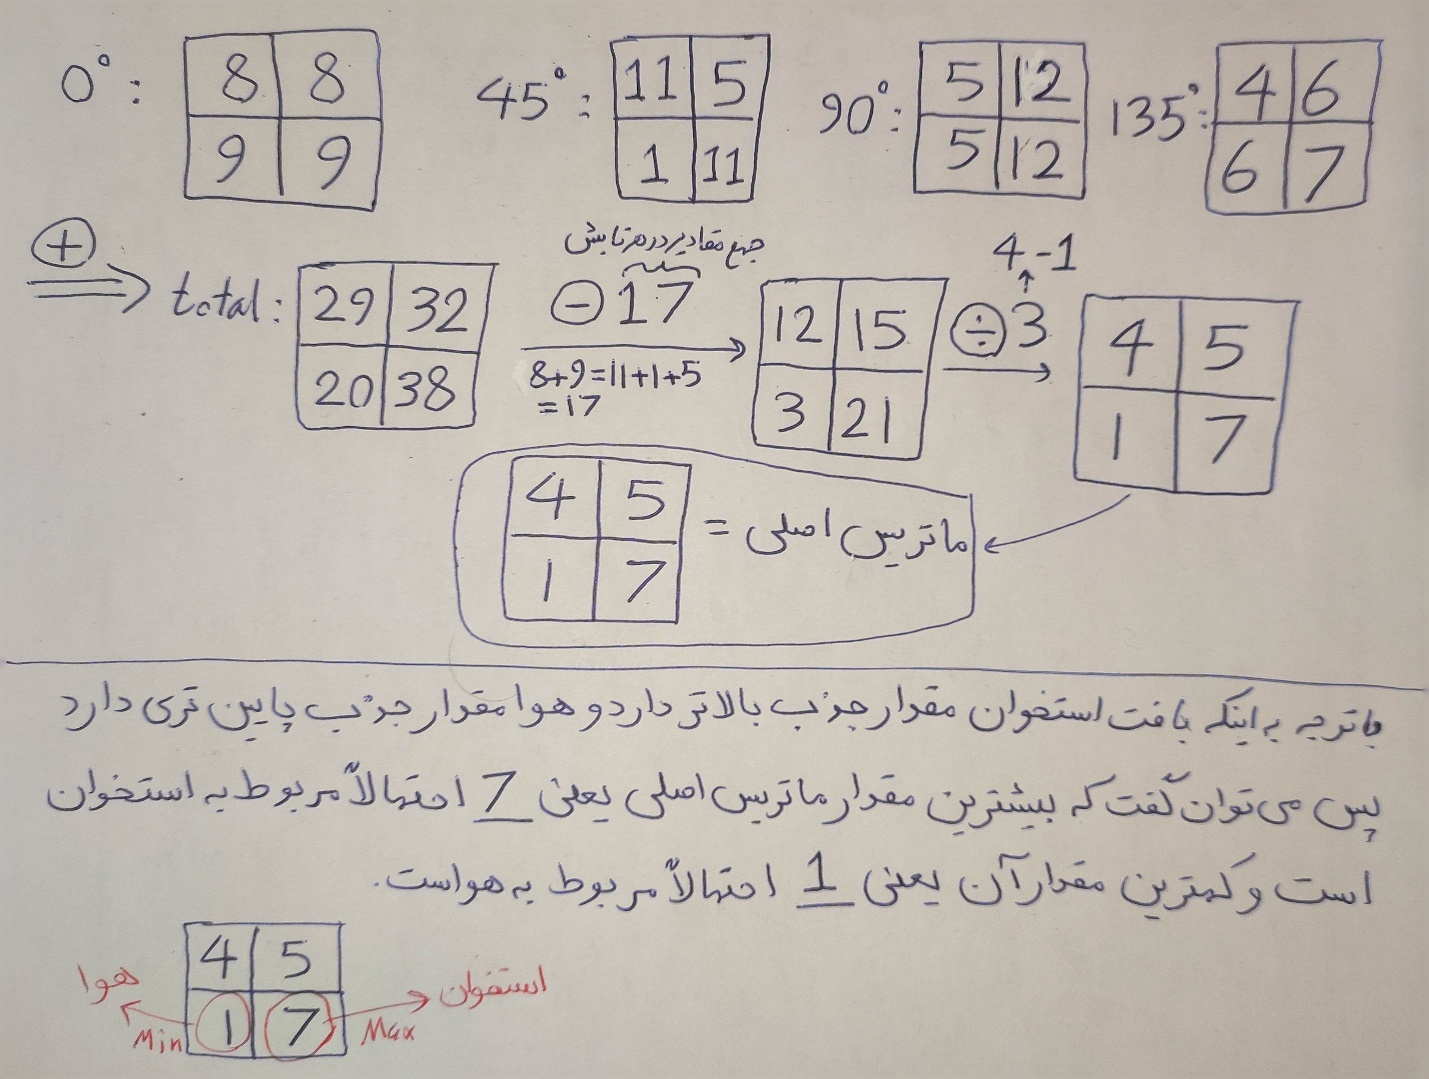 0°: 8 8
9 9
45°: 11 5
1 11
90°: 5 12
5 12
135°: 4 6
6 7
+ ⇒ total: 29 32
20 38
جمع مقادیر در هر تابش
− 17
8+9=11+1+5
=17
12 15
3 21
4-1
÷ 3
4 5
1 7
ماتریس اصلی = 4 5
1 7
با توجه به اینکه بافت استخوان مقدار جذب بالاتر دارد و هوا مقدار جذب پایین تری دارد
پس می توان گفت که بیشترین مقدار ماتریس اصلی یعنی 7 احتمالاً مربوط به استخوان
است و کمترین مقدار آن یعنی 1 احتمالاً مربوط به هواست.
4 5
1 7
هوا
Min
استخوان
Max